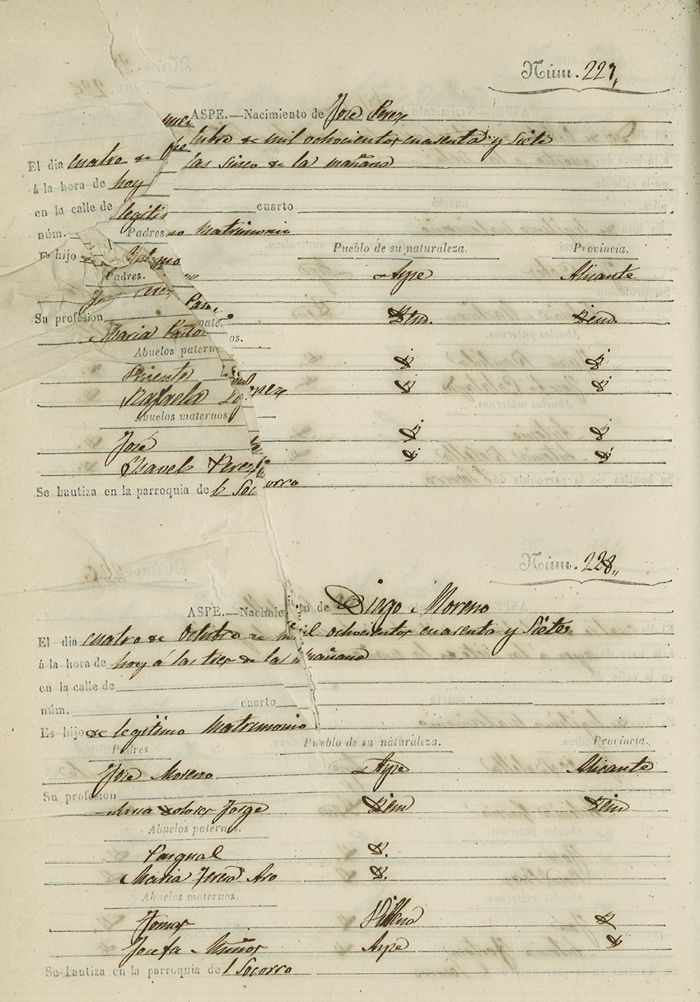 Núm. 227,,
ASPE.—Nacimiento de José Perez
El dia cuatro de Octubre de mil ochocientos cuarenta y siete
á la hora de hoy á las sinco de la mañana
en la calle de
núm. cuarto
Es hijo de legitimo Matrimonio
Padres. Pueblo de su naturaleza. Provincia.
José Perez Aspe Alicante
Su profesion
Maria Idem Idem
Abuelos paternos.
Vicente
Rafaela Lopez
Abuelos maternos
José
Perez
Se bautiza en la parroquia del Socorro
Núm. 228,,
ASPE.—Nacimiento de Diego Moreno
El dia cuatro de Octubre de mil ochocientos cuarenta y siete
á la hora de hoy á las tres de la mañana
en la calle de
núm. cuarto
Es hijo de legitimo Matrimonio
Padres Pueblo de su naturaleza. Provincia.
José Moreno Aspe Alicante
Su profesion
Maria Dolores Jorge Idem Idem
Abuelos paternos.
Pasqual
Maria Teresa
Abuelos maternos.
Tomas Villena
Josefa Muñoz Aspe
Se bautiza en la parroquia del Socorro